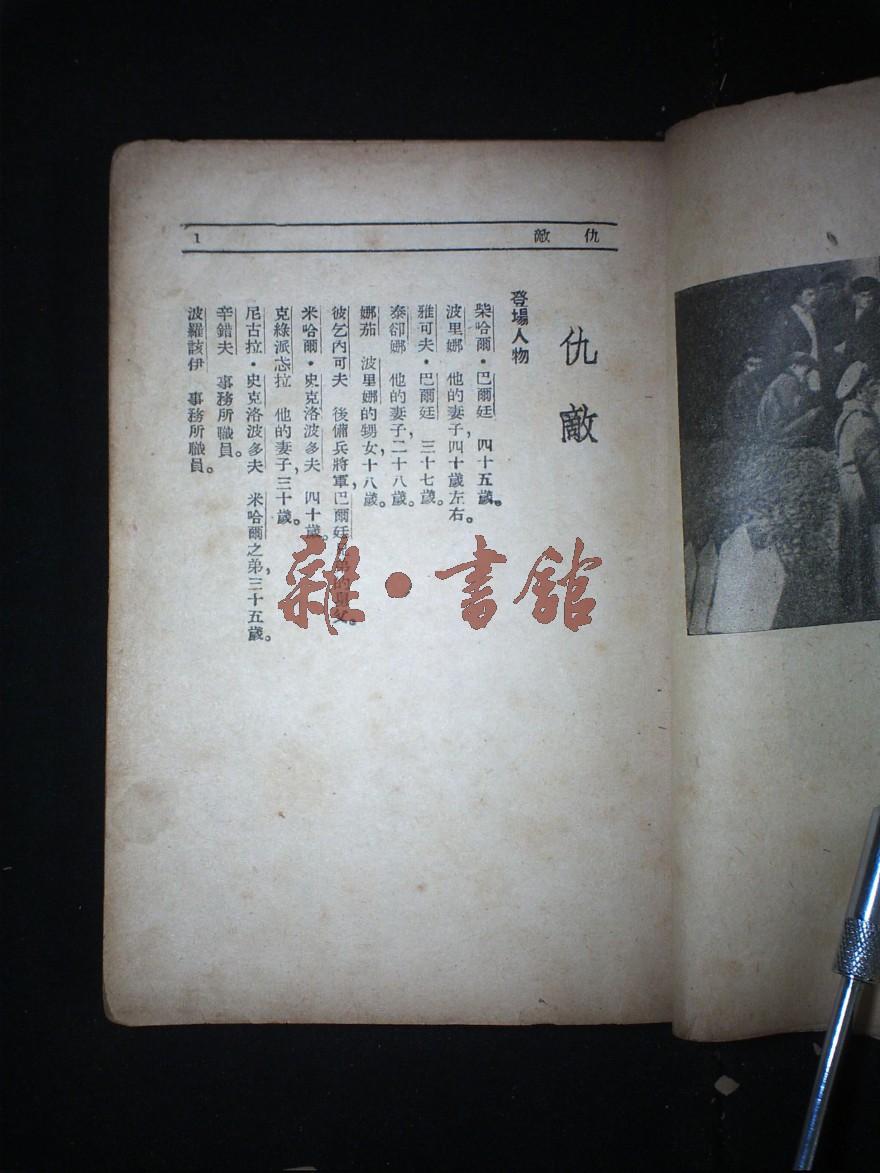 仇 敵
1
仇敵
登場人物
柴哈爾・巴爾廷 四十五歲。
波里娜 他的妻子,四十歲左右。
雅可夫・巴爾廷 三十七歲。
泰卻娜 他的妻子,二十八歲。
娜茄 波里娜的甥女,十八歲。
彼乞內可夫 後備兵將軍,巴爾廷
米哈爾・史克洛波多夫 四十歲。
克綠派忒拉 他的妻子,三十歲。
尼古拉・史克洛波多夫 米哈爾之弟,三十五歲。
辛錯夫 事務所職員。
波羅該伊 事務所職員。
雜・書館